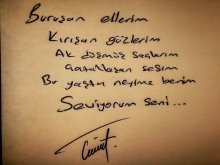 Buruşan ellerim
Kırışan gözlerim
Ak düşmüş saçlarım
Çatallaşan sesim
Bu yaştan neyime benim
Seviyorum seni...